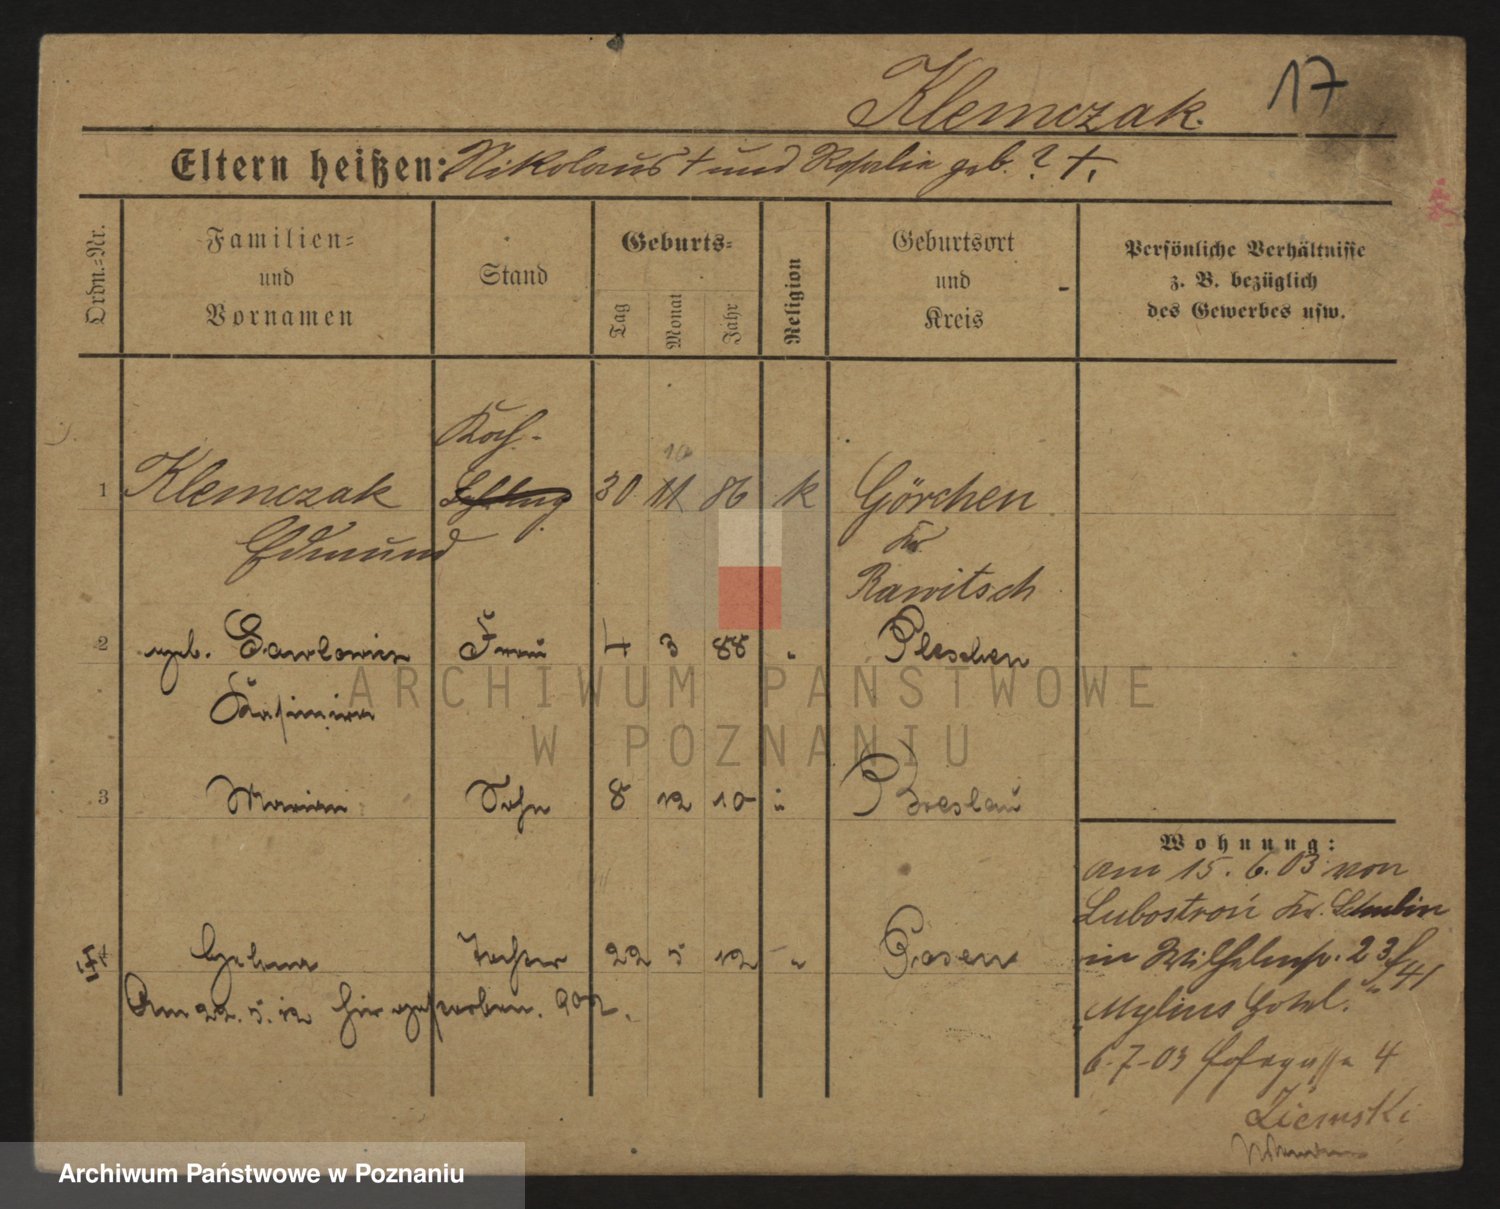 Klemczak.
17
Eltern heißen: Nikolaus † und Rosalia geb. ? †.
Ordn.=Nr.
Familien= und Vornamen
Stand
Geburts=
Tag
Monat
Jahr
Religion
Geburtsort und Kreis
Persönliche Verhältnisse z. B. bezüglich des Gewerbes usw.
Koch.
10
1 Klemczak Lehrling 30 11 86 k Görchen
Edmund Kr.
Rawitsch
2 geb. Frau 4 3 88 " Pleschen
Kasimira
3 Marian Sohn 8 12 10 " Breslau
Tochter 22 5 12 " Posen
Am 22. 5. 12 hier gestorben.
Wohnung:
am 15. 6. 03 von
Lubostroń Kr. Schubin
in Wilhelmstr. 23
"Mylius Hotel."
6-7-03 4
Ziemski
ARCHIWUM PAŃSTWOWE
W POZNANIU
Archiwum Państwowe w Poznaniu